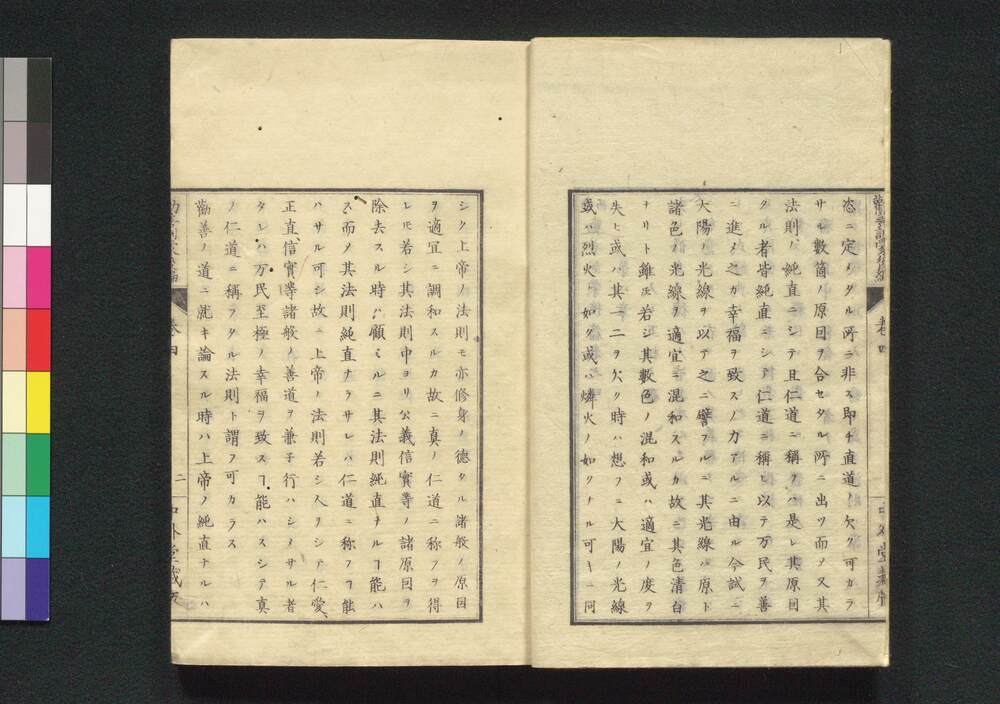 恣ニ定メタル所ニ非ス即チ直道ノ欠ク可カラ
サル數箇ノ原因ヲ合セタル所ニ出ツ而メ又其
法則ハ純直ニシテ且仁道ニ稱ヘハ是レ其原因
タル者皆純直ニシテ仁道ニ稱ヒ以テ万民ヲ善
ニ進メ之カ幸福ヲ致スノ力アルニ由ル今試ニ
大陽ノ光線ヲ以テ之ニ譬フルニ其光線ハ原ト
諸色ノ光線ヲ適宜ニ混和スルカ故ニ其色清白
ナリト雖𪜈若シ其數色ノ混和或ハ適宜ノ度ヲ
失ヒ或ハ其一二ヲ欠ク時ハ想フニ大陽ノ光線
或ハ烈火ノ如ク或ハ燐火ノ如クナル可キニ同
卷四
シク上帝ノ法則モ亦修身ノ德タル諸般ノ原因
ヲ適宜ニ調和スルカ故ニ真ノ仁道ニ称フヲ得
レ𪜈若シ其法則中ヨリ公義信實等ノ諸原因ヲ
除去スル時ハ顧ミルニ其法則純直ナルヿ能ハ
ス而メ其法則純直ナラサレハ仁道ニ称フヿ能
ハサル可シ故ニ上帝ノ法則若シ人ヲシテ仁愛、
正直、信實等諸般ノ善道ヲ兼子行ハシメサル者
タレハ万民至極ノ幸福ヲ致スヿ能ハスシテ真
ノ仁道ニ稱フタル法則ト謂フ可カラス
勸善ノ道ニ就キ論スル時ハ上帝ノ純直ナルハ
卷四
二
中外堂藏